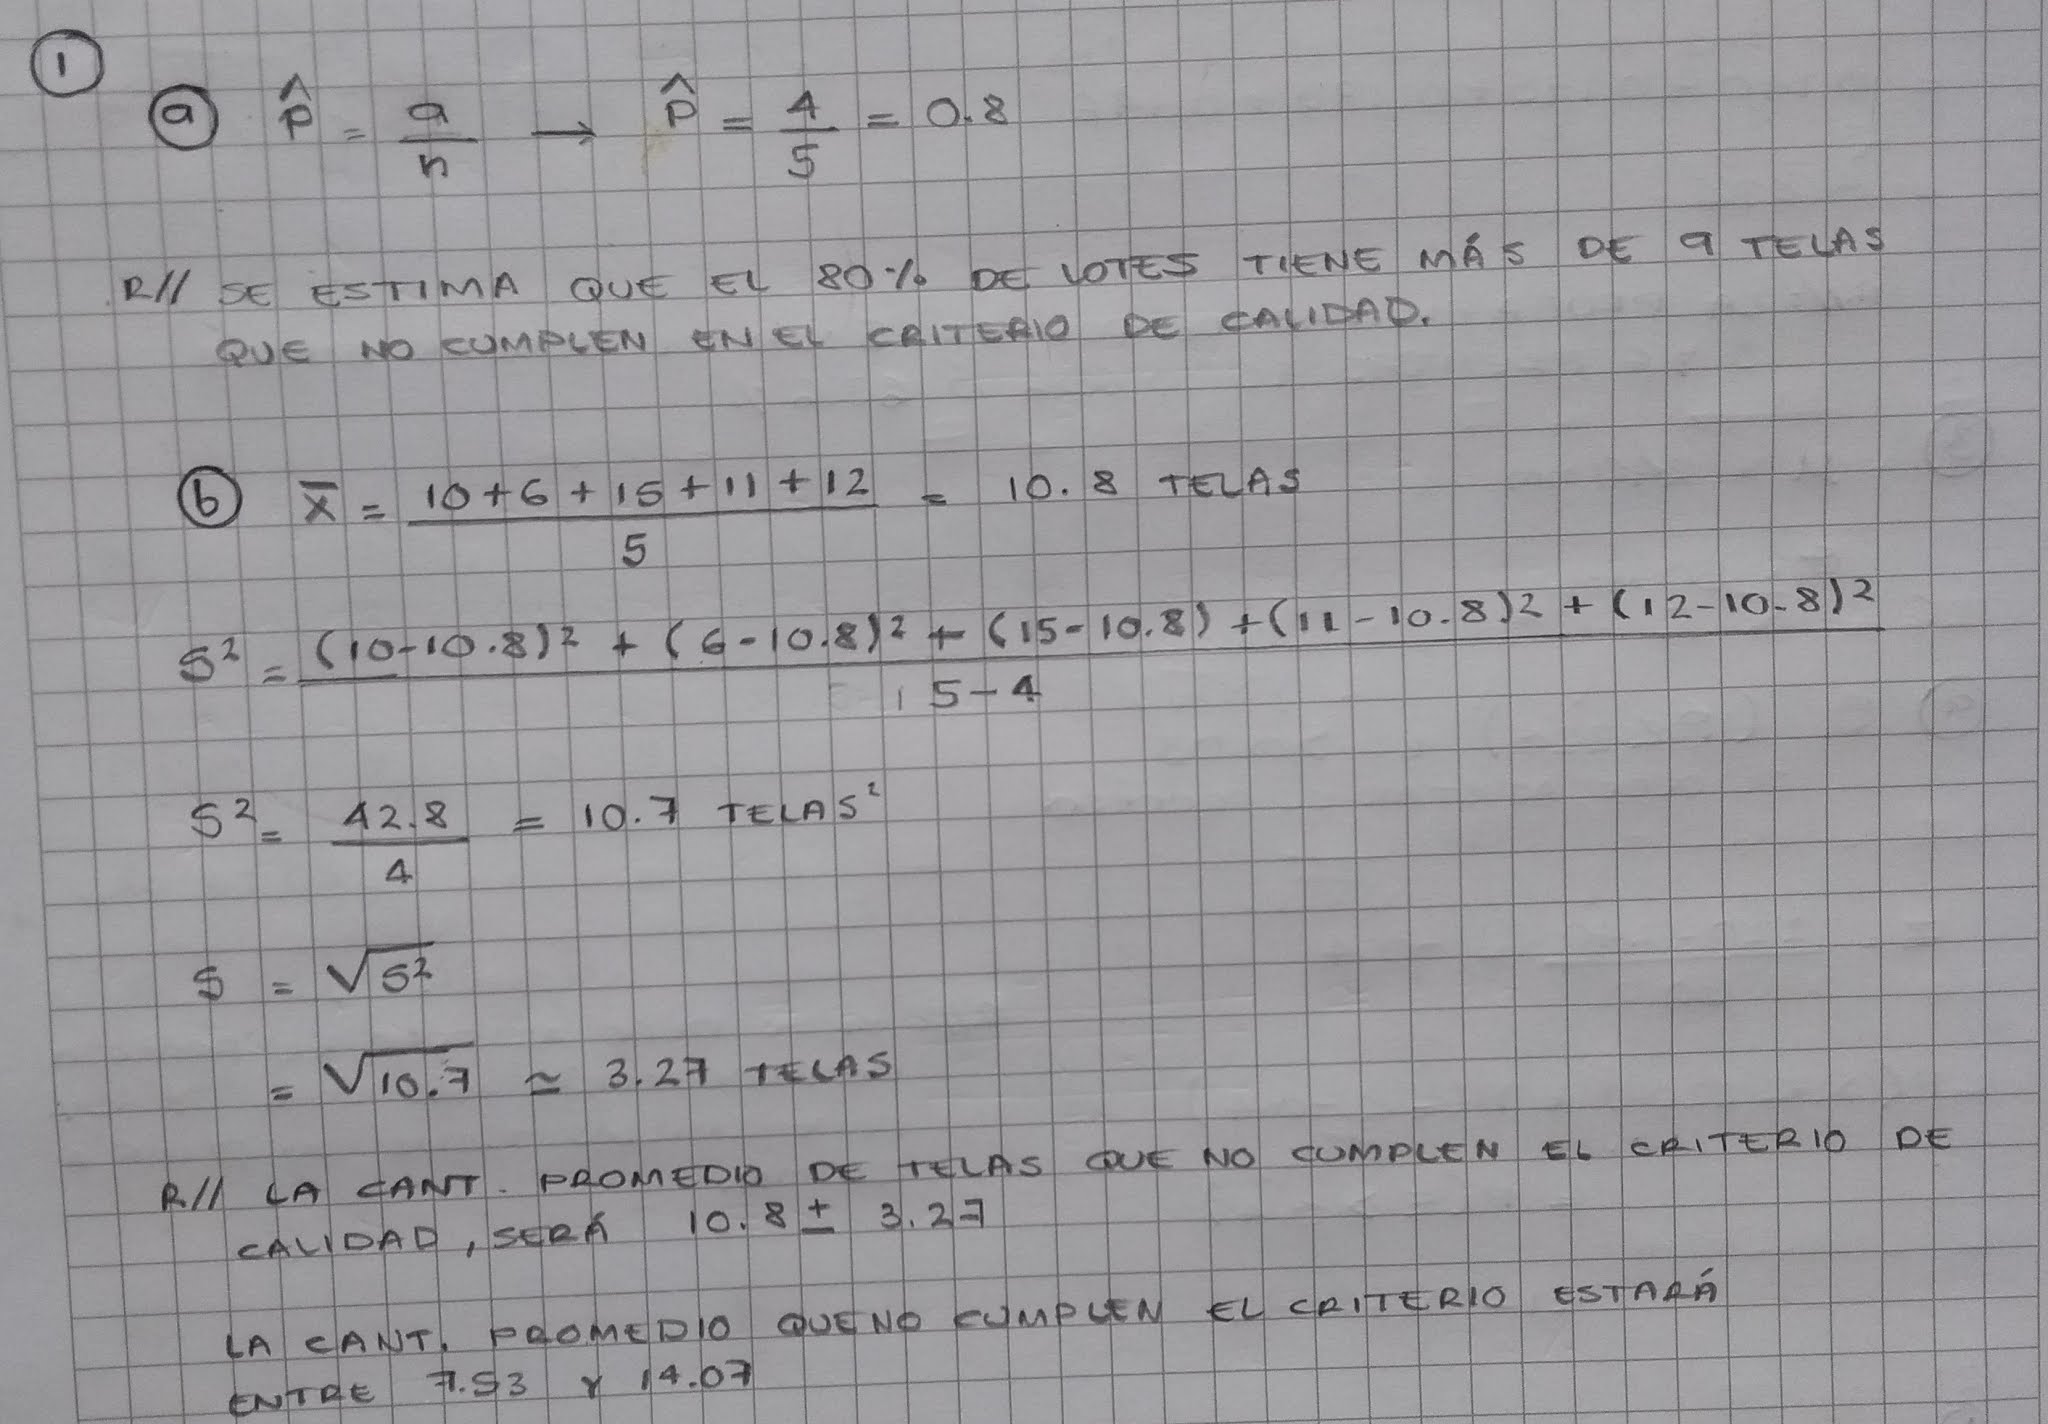 1
a p̂ = a/n → p̂ = 4/5 = 0.8
R// SE ESTIMA QUE EL 80% DE LOTES TIENE MÁS DE 9 TELAS
QUE NO CUMPLEN EN EL CRITERIO DE CALIDAD.
b x̄ = (10+6+15+11+12)/5 = 10.8 TELAS
S² = ((10-10.8)² + (6-10.8)² + (15-10.8) + (11-10.8)² + (12-10.8)²)/(5-4)
S² = 42.8/4 = 10.7 TELAS²
S = √S²
= √10.7 ≃ 3.27 TELAS
R// LA CANT. PROMEDIO DE TELAS QUE NO CUMPLEN EL CRITERIO DE
CALIDAD, SERÁ 10.8 ± 3.27
LA CANT. PROMEDIO QUE NO CUMPLEN EL CRITERIO ESTARÁ
ENTRE 7.53 Y 14.07